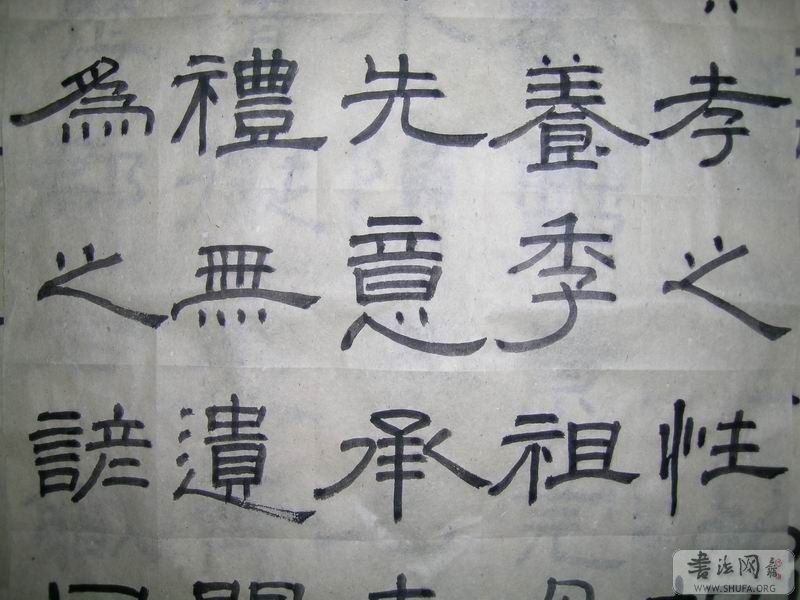 孝之性
養季祖
先意承
禮無遺
為之諺
書法网
WWW.SHUFA.ORG